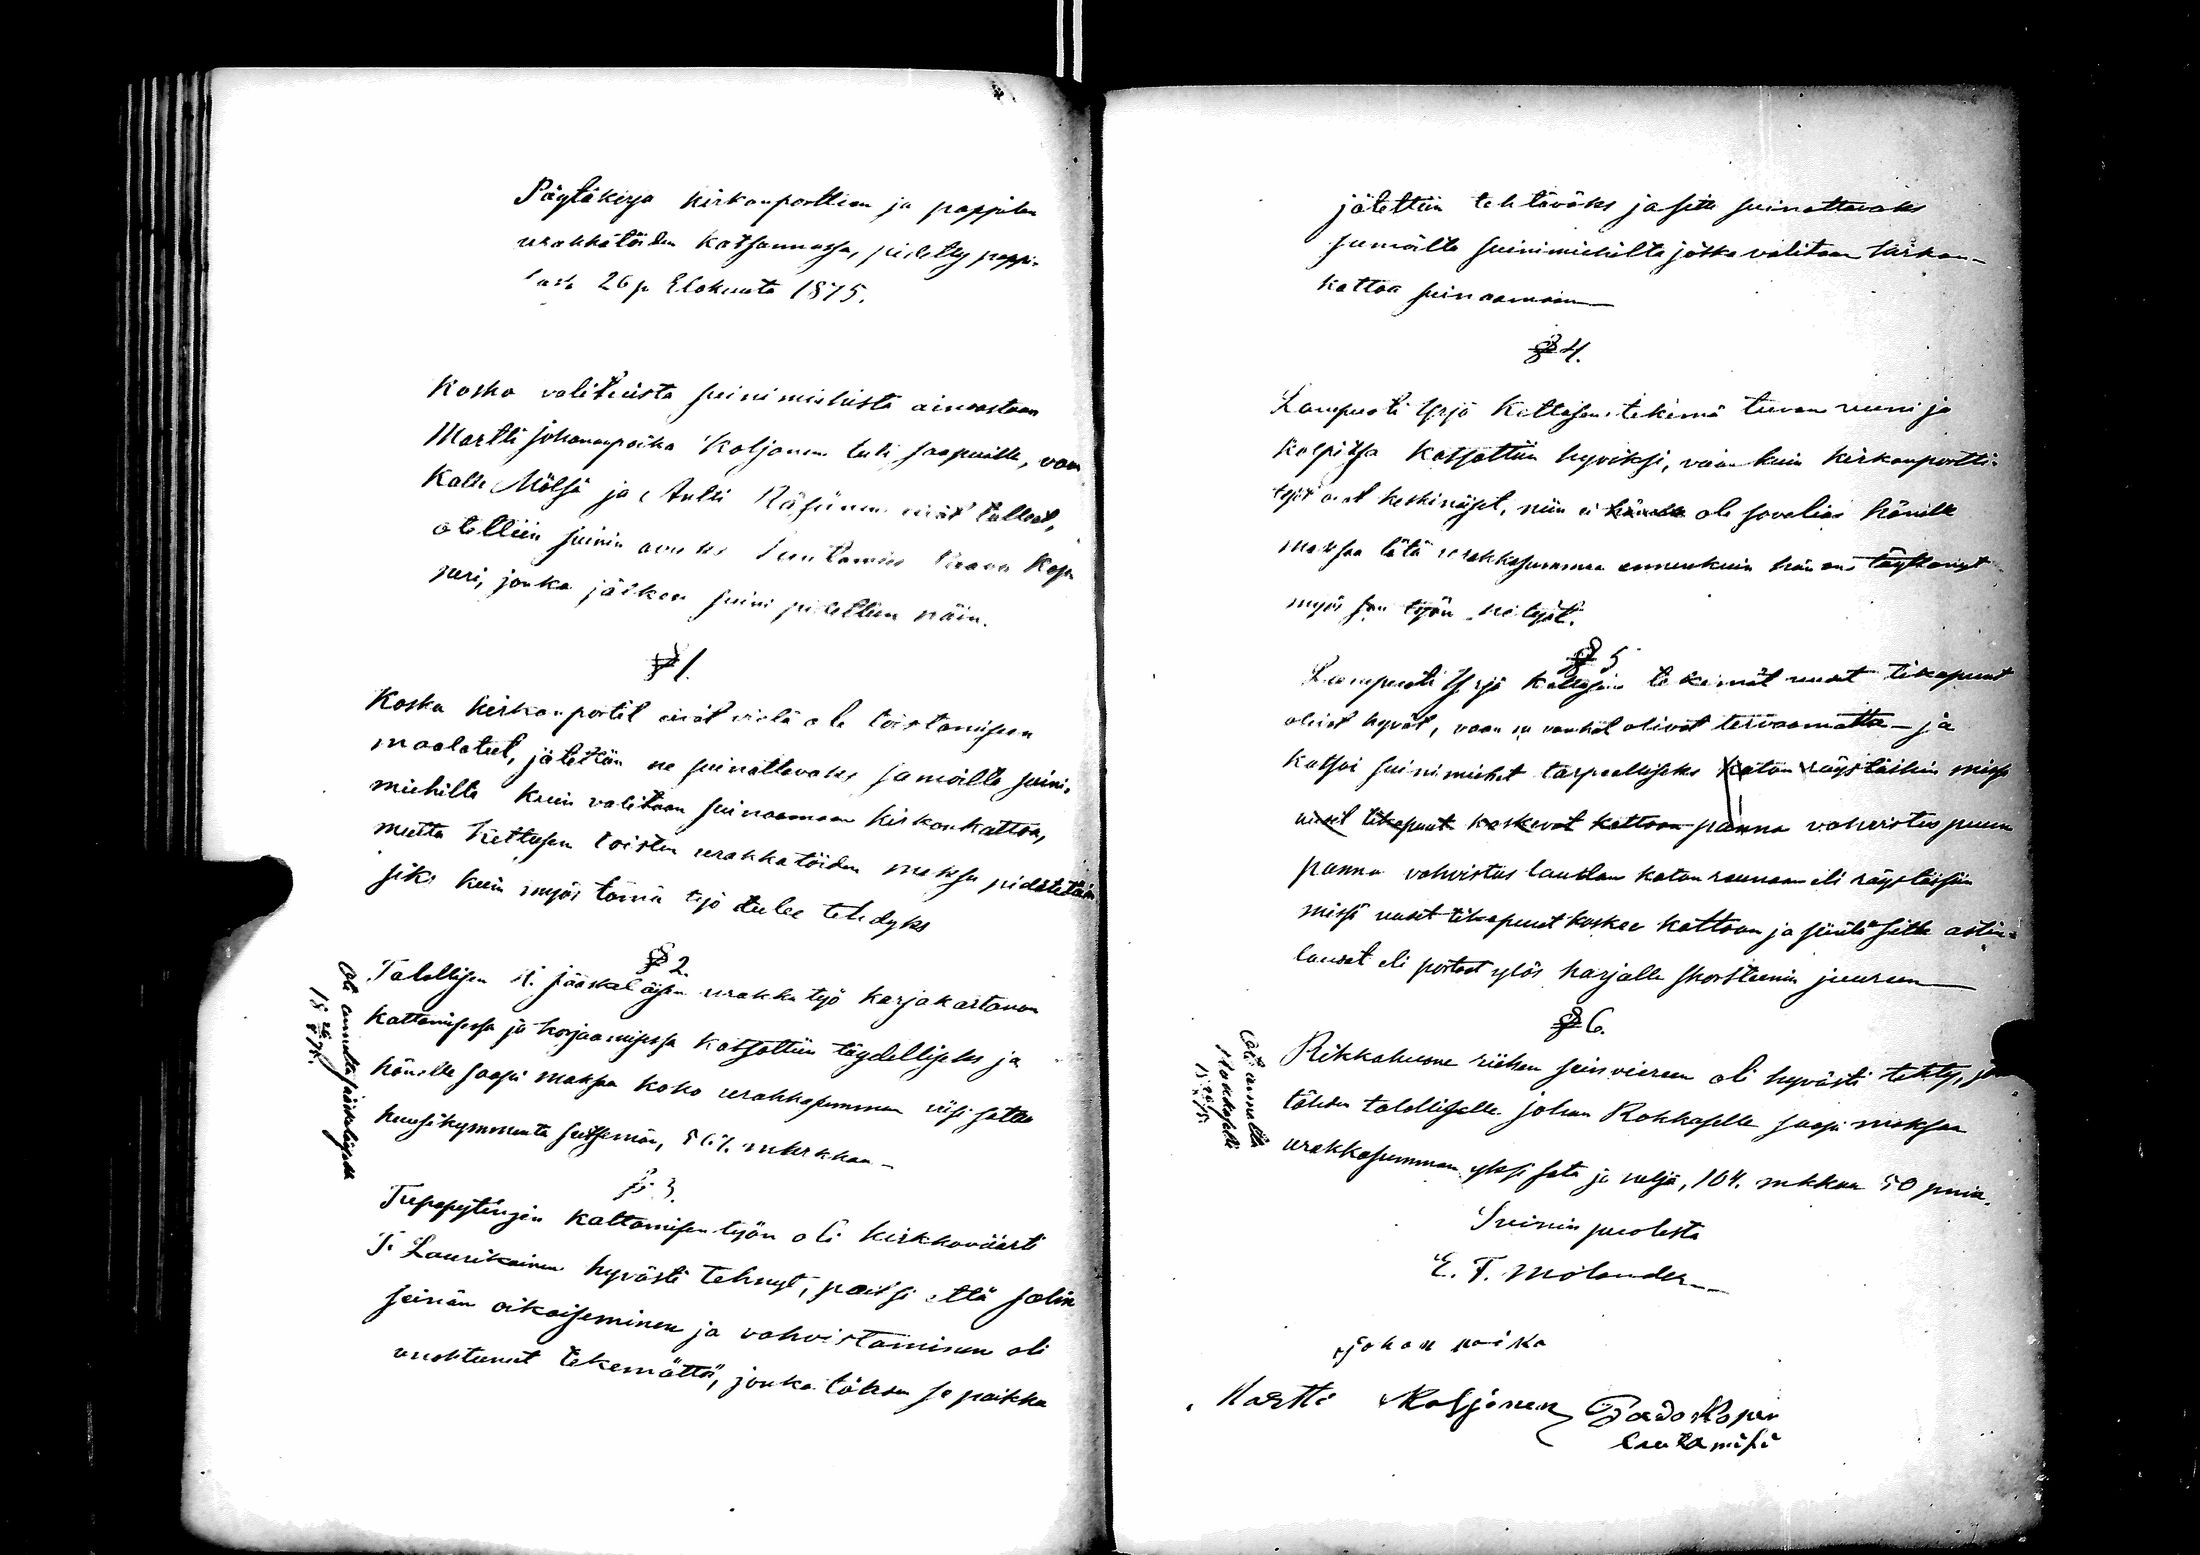 Pöytäkirja kirkonporttien ja pappilan
urakkatöiden katsannossa, pidetty pappi-
lasta 26 p. Elokuuta 1875.
Koska valituista suinimiehistä ainoastaan
Martti Johananpoika Koljonen tuli saapuille, vaan
Kalle Mölsä ja Antti Räsänen eivät tulleet,
otettiin suinin avuks Lautamies Paavo Kapa-
neri, jonka jälkeen suini pidettiin näin.
§ 1.
Koska kirkonportit eivät vielä ole toistamiseen
maalatut, jätetään ne suinattavaks samoilta suini-
miehiltä kuin valitaan suinaamaan kirkonkattoa,
mutta Kettusen toisten urakkatöiden maksu pidätetään
siks kuin myös tämä työ tulee tehdyks
§ 2.
Talollisen H. Jääskeläisen urakka työ karjakartanon
kattamisessa ja korjaamisessa katsottiin täydelliseks ja
hänelle saapi maksaa koko urakkasumman viisi sataa
kuusikymmentä seitsemän, 567. markkaa –
Oli annettu Jääskeläiselle
18 26/8 75.
§ 3.
Tupapytingin kattamisen työn oli kirkkoväärti
T. Laurikainen hyvästi tehnyt, paitsi että salin
seinän oikaiseminen ja vahvistaminen oli
unohtunut tekemättä, jonka tähden se paikka
jätettiin tehtäväks ja sitte suinattavaks
samoilta suinimiehiltä jotka valitaan kirkon-
kattoa suinaamaan
§ 4.
Lampuoti Yrjö Kettusen tekemä tuvan uuni ja
kolpitsa katsottiin hyviksi, vaan kuin kirkonportti-
työt ovat keskinäiset, niin ei hänelle ole sovelias hänelle
maksaa tätä urakkasummaa ennenkuin hän on täyttänyt
myös sen työn ne työt.
§ 5
Lampuoti Yrjö Kettusen tekemät uuset tikapuut
olivat hyvät, vaan ne vanhat olivat tervaamatta – ja
katsoi suinimiehet tarpeelliseks katon räystäihin missä
uuset tikapuut koskevat kattoon panna vahvistus puun
panna vahvistus laudan katon reunaan eli räystäisiin
missä uuset tikapuut koskee kattoon ja siitä sitte astin-
lauvat eli portaat ylös harjalle skorsteenin juureen
§ 6.
Rikkahuone riihen seinviereen oli hyvästi tehty,
tähden talolliselle Johan Rokkaselle saapi maksaa
urakkasumman yksi sata ja neljä, 104. mkkaa 50 penniä.
Oli annettu
Rokkaselle
18 26/8 75.
Suinin puolesta
E. F. Molander
Johan poika
Martti Koljonen Paavo Kapan
lautamisi